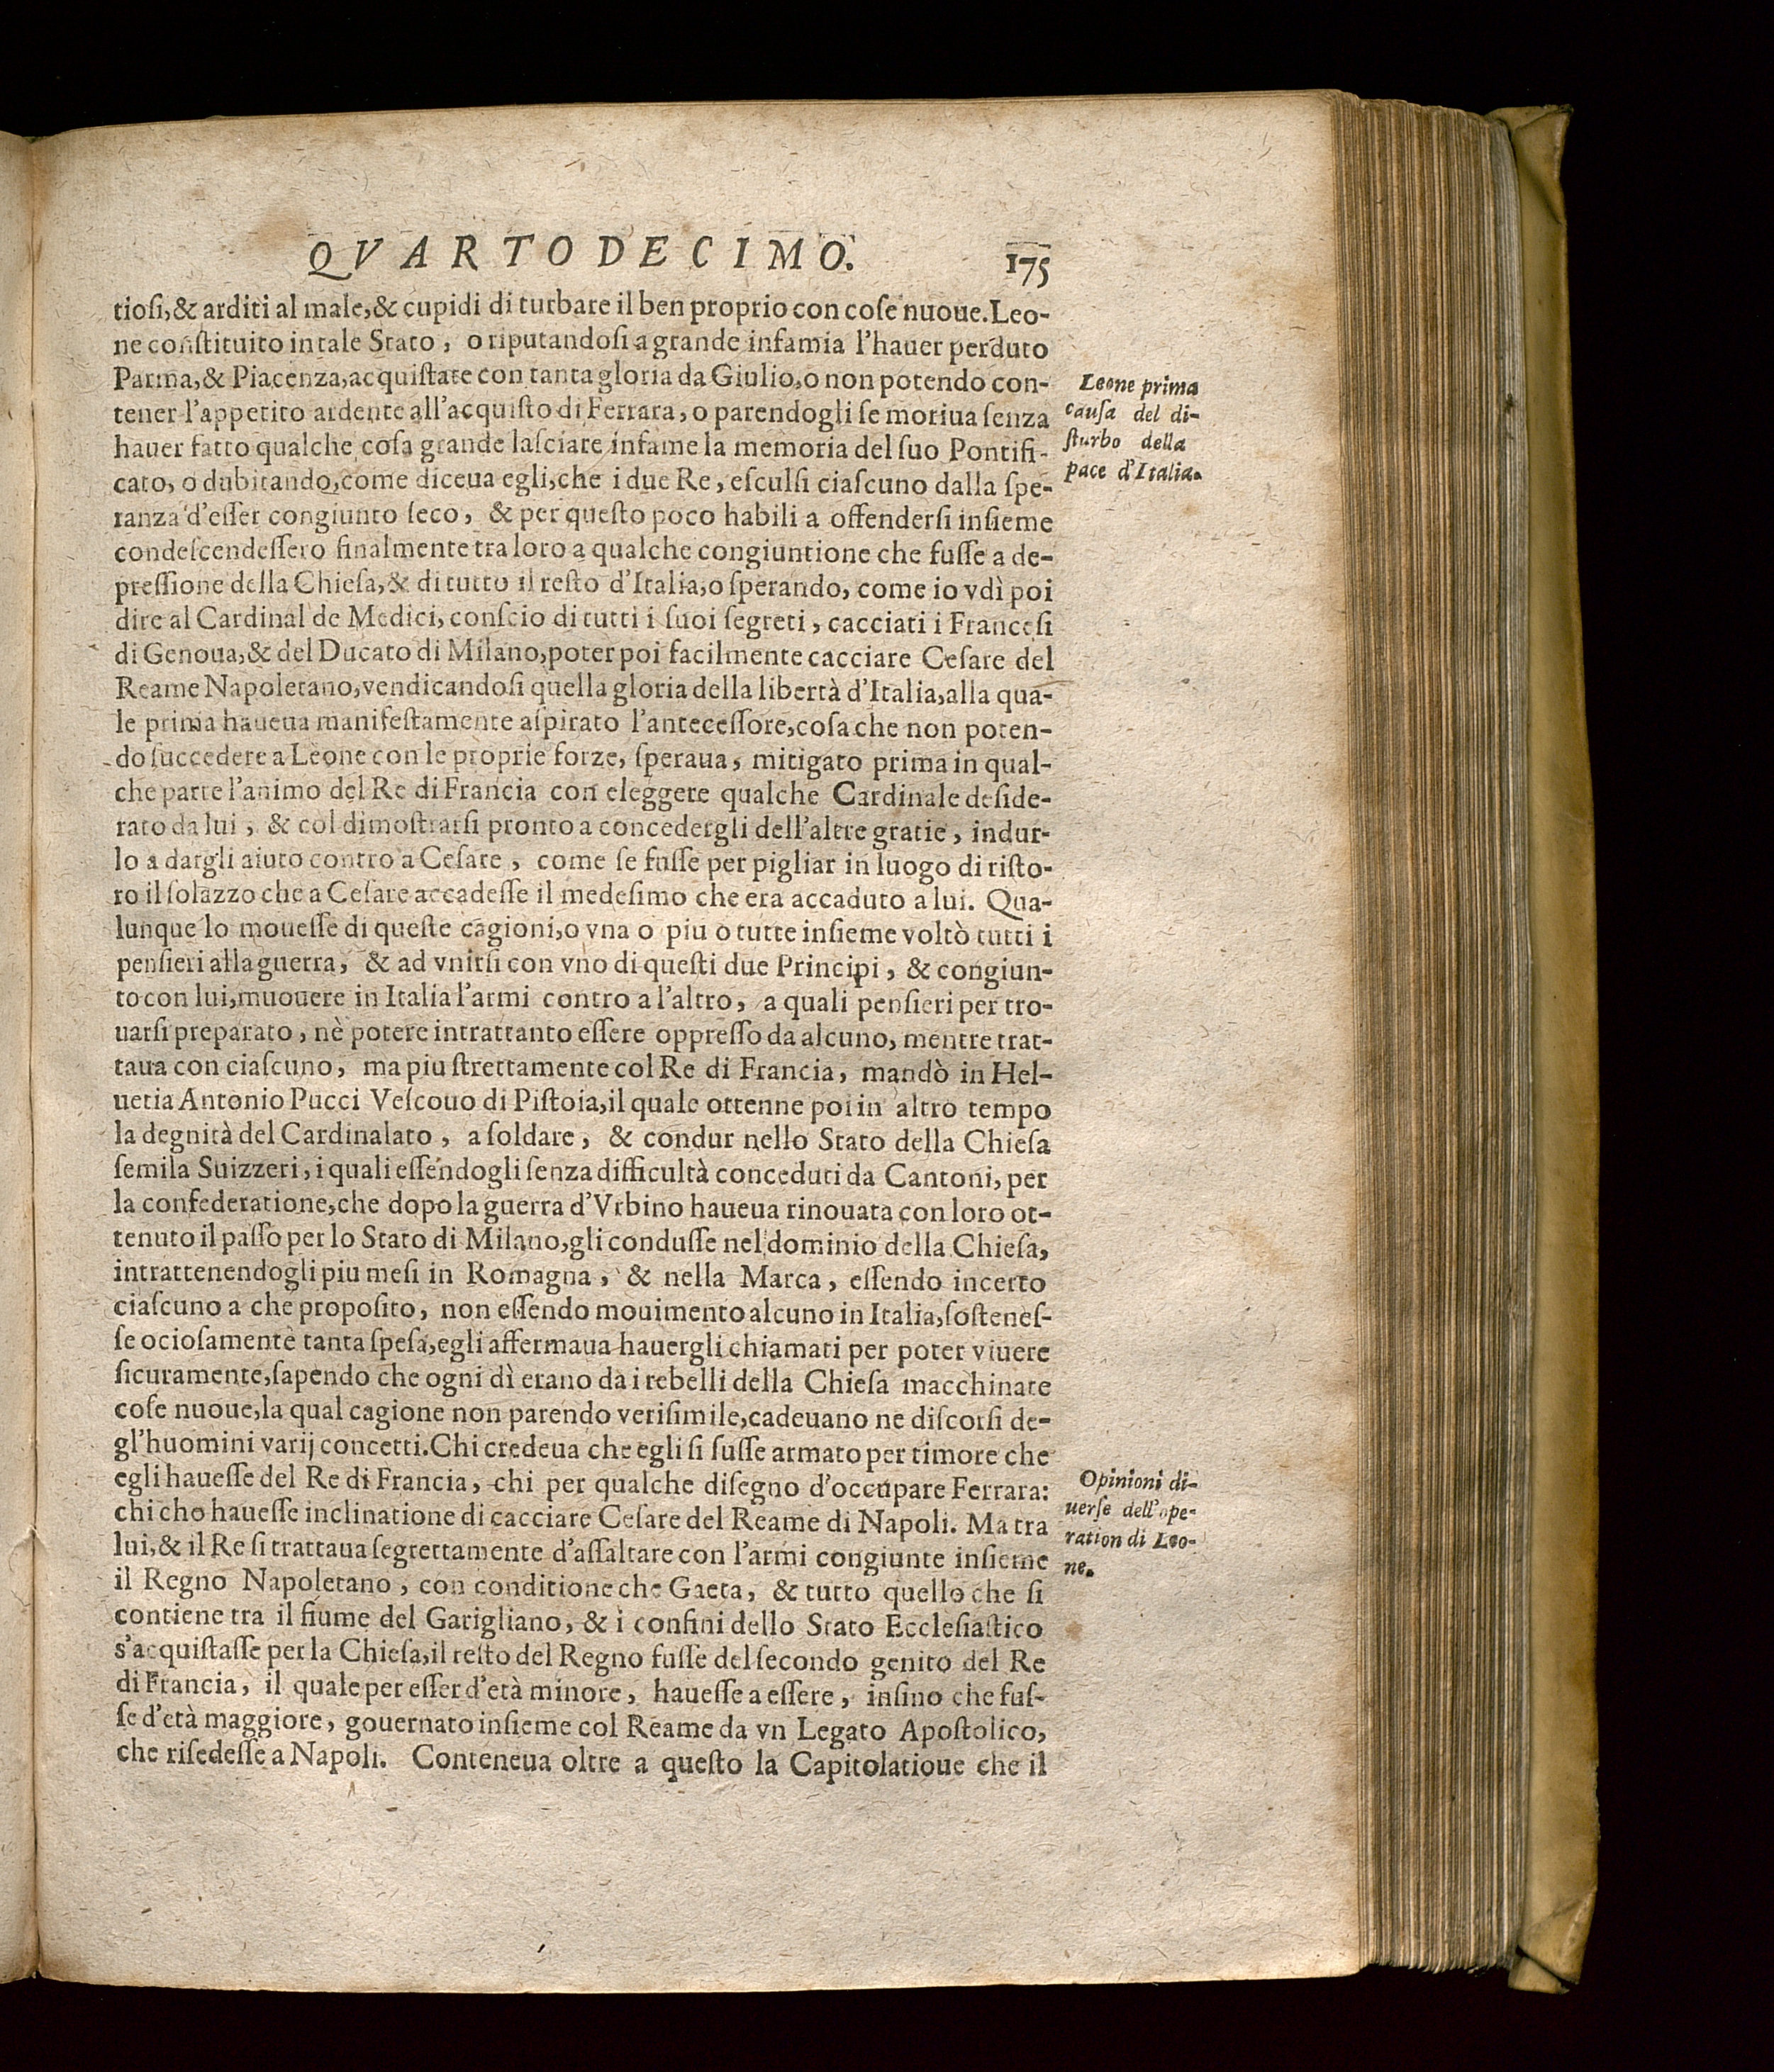 QVARTODECIMO. 175
tiosi,& arditi al male,& cupidi di turbare il ben proprio con cose nuoue.Leo-
ne constituito in tale Stato, o riputandosi a grande infamia l'hauer perduto
Parma,& Piacenza,acquistate con tanta gloria da Giulio,o non potendo con-
tener l'appetito ardente all'acquisto di Ferrara, o parendogli se moriua senza
hauer fatto qualche cosa grande lasciare infame la memoria del suo Pontifi-
cato, o dubitando,come diceua egli,che i due Re, esculsi ciascuno dalla spe-
ranza d'esser congiunto seco, & per questo poco habili a offendersi insieme
condescendessero finalmente tra loro a qualche congiuntione che fusse a de-
pressione della Chiesa,& di tutto il resto d'Italia,o sperando, come io vdì poi
dire al Cardinal de Medici, conscio di tutti i suoi segreti, cacciati i Francesi
di Genoua,& del Ducato di Milano,poter poi facilmente cacciare Cesare del
Reame Napoletano,vendicandosi quella gloria della libertà d'Italia,alla qua-
le prima haueua manifestamente aspirato l'antecessore,cosa che non poten-
do succedere a Leone con le proprie forze, speraua, mitigato prima in qual-
che parte l'animo del Re di Francia con eleggere qualche Cardinale deside-
rato da lui, & col dimostrarsi pronto a concedergli dell'altre gratie, indur-
lo a dargli aiuto contro a Cesare, come se fusse per pigliar in luogo di risto-
ro il solazzo che a Cesare accadesse il medesimo che era accaduto a lui. Qua-
lunque lo mouesse di queste cagioni,o vna o piu o tutte insieme voltò tutti i
pensieri alla guerra, & ad vnirsi con vno di questi due Principi, & congiun-
to con lui,muouere in Italia l'armi contro a l'altro, a quali pensieri per tro-
uarsi preparato, nè potere intrattanto essere oppresso da alcuno, mentre trat-
taua con ciascuno, ma piu strettamente col Re di Francia, mandò in Hel-
uetia Antonio Pucci Vescouo di Pistoia,il quale ottenne poi in altro tempo
la degnità del Cardinalato, a soldare, & condur nello Stato della Chiesa
semila Suizzeri, i quali essendogli senza difficultà conceduti da Cantoni, per
la confederatione,che dopo la guerra d'Vrbino haueua rinouata con loro ot-
tenuto il passo per lo Stato di Milano,gli condusse nel dominio della Chiesa,
intrattenendogli piu mesi in Romagna, & nella Marca, essendo incerto
ciascuno a che proposito, non essendo mouimento alcuno in Italia,sostenes-
se ociosamente tanta spesa,egli affermaua hauergli chiamati per poter viuere
sicuramente,sapendo che ogni dì erano da i rebelli della Chiesa macchinate
cose nuoue,la qual cagione non parendo verisimile,cadeuano ne discorsi de-
gl'huomini varij concetti.Chi credeua che egli si fusse armato per timore che
egli hauesse del Re di Francia, chi per qualche disegno d'occupare Ferrara:
chi cho hauesse inclinatione di cacciare Cesare del Reame di Napoli. Ma tra
lui,& il Re si trattaua segrettamente d'assaltare con l'armi congiunte insieme
il Regno Napoletano, con conditione che Gaeta, & tutto quello che si
contiene tra il fiume del Garigliano, & i confini dello Stato Ecclesiastico
s'acquistasse per la Chiesa,il resto del Regno fusse del secondo genito del Re
di Francia, il quale per esser d'età minore, hauesse a essere, insino che fus-
se d'età maggiore, gouernato insieme col Reame da vn Legato Apostolico,
che risedesse a Napoli. Conteneua oltre a questo la Capitolatioue che il
Leone prima
causa del di-
sturbo della
pace d'Italia.
Opinioni di-
uerse dell'ope-
ration di Leo-
ne.